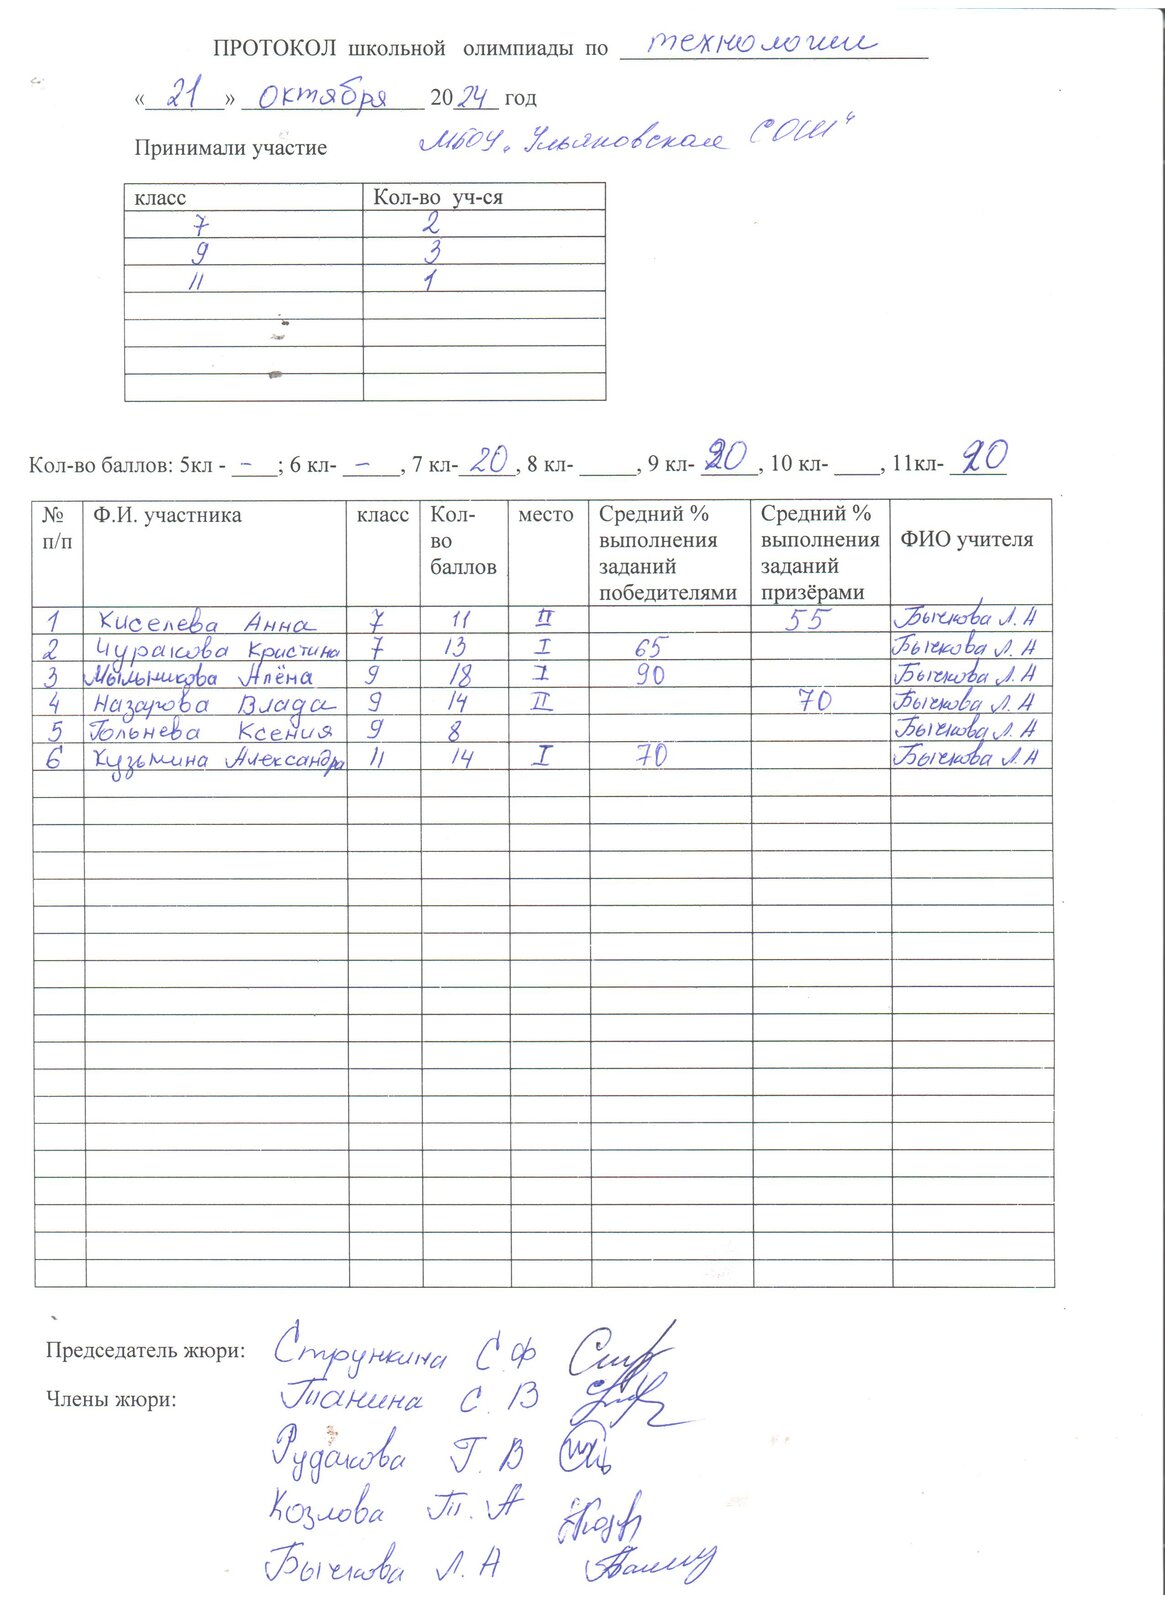 ПРОТОКОЛ школьной олимпиады по технологии
«21» октября 2024 год
Принимали участие МБОУ „Ульяновская СОШ“
класс Кол-во уч-ся
7 2
9 3
11 1
Кол-во баллов: 5кл - – ; 6 кл- – , 7 кл- 20, 8 кл- ____, 9 кл- 20, 10 кл- ____, 11кл- 20
№ п/п Ф.И. участника класс Кол-во баллов место Средний % выполнения заданий победителями Средний % выполнения заданий призёрами ФИО учителя
1 Киселева Анна 7 11 II 55 Бычкова Л. А
2 Чуракова Кристина 7 13 I 65 Бычкова Л. А
3 Мыльникова Алёна 9 18 I 90 Бычкова Л. А
4 Назарова Влада 9 14 II 70 Бычкова Л. А
5 Гольнева Ксения 9 8 Бычкова Л. А
6 Кузьмина Александра 11 14 I 70 Бычкова Л. А
Председатель жюри: Стрункина С Ф
Члены жюри: Танина С. В
Рудакова Г. В
Козлова Т. А
Бычкова Л. А